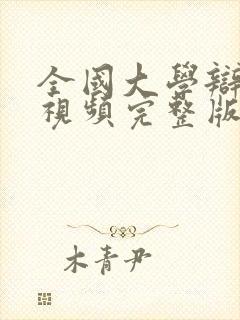 全國大學辯
視頻完整版
木青尹